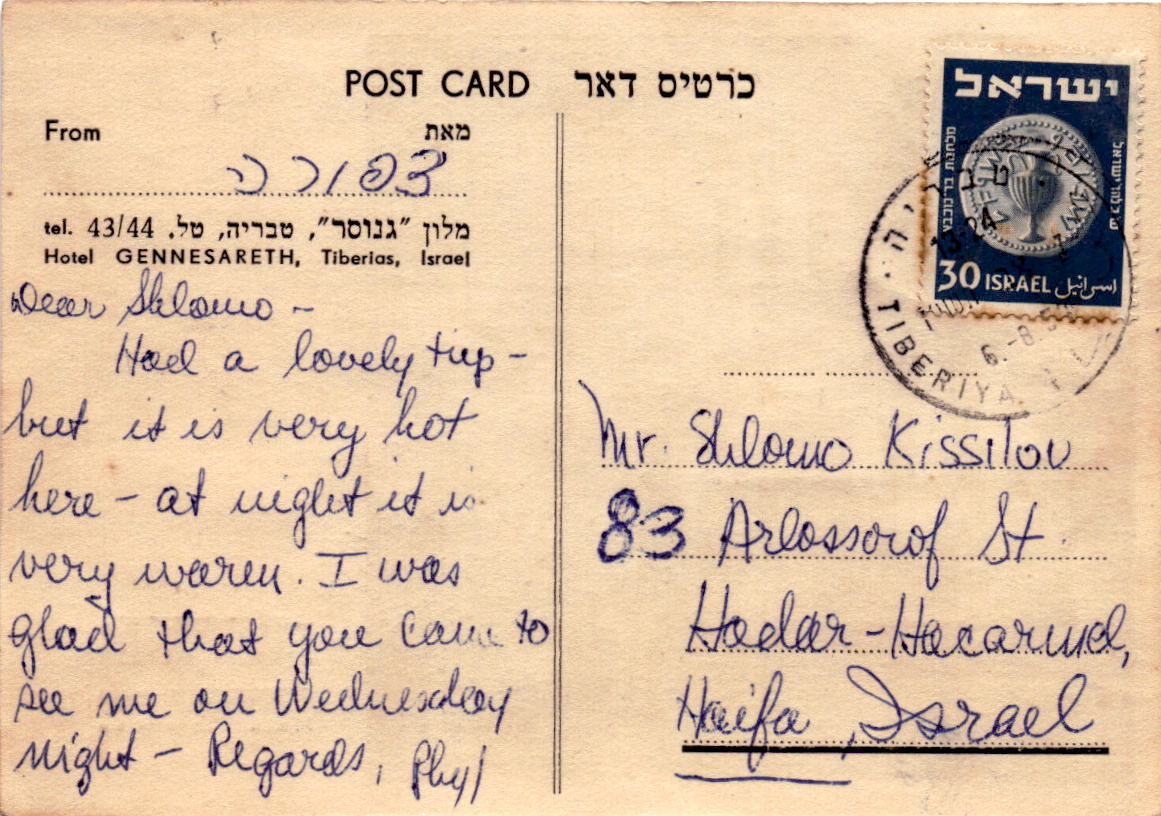 POST CARD כרטיס דאר
From מאת
צפורה
tel. 43/44 מלון "גנוסר", טבריה, טל.
Hotel GENNESARETH, Tiberias, Israel
Dear Shlomo -
Had a lovely trip -
but it is very hot
here - at night it is
very warm. I was
glad that you came to
see me on Wednesday
night - Regards, Phyl
ישראל
30 ISRAEL اسرائيل
טבריה
13-24
6.-8.5
TIBERIYA
Mr. Shlomo Kissilov
83 Arlossorof St.
Hadar-Hacarmel,
Haifa, Israel